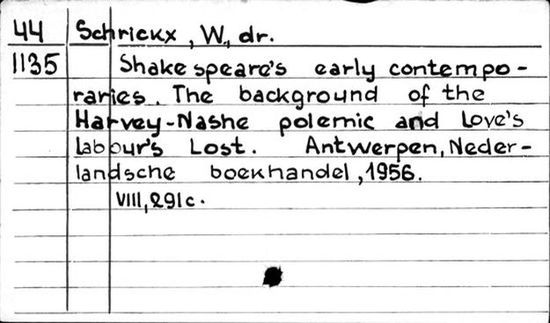 44 Schrickx, W., dr.
1135 Shakespeare's early contempo-
raries. The background of the
Harvey-Nashe polemic and Love's
Labour's Lost. Antwerpen, Neder-
landsche boekhandel, 1956.
VIII, 291c.